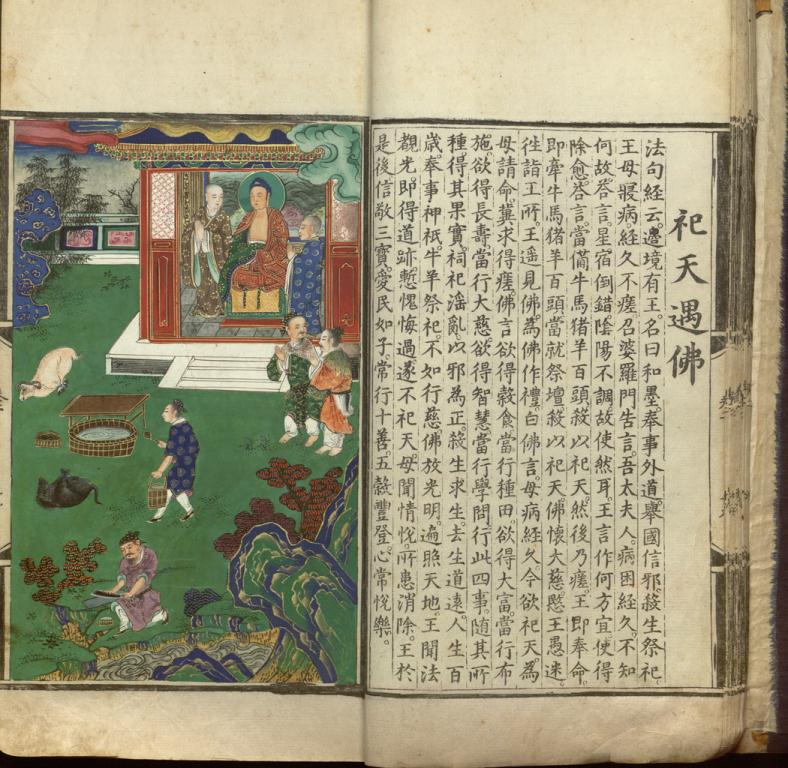 祀天遇佛
法句經云。邊境有王。名曰和墨。奉事外道。舉國信邪。殺生祭祀
王母寢病經久不瘥召婆羅門告言。吾太夫人。病困經久。不知
何故。答言。星宿倒錯。陰陽不調。故使然耳。王言作何方宜使得
除愈。答言。當備牛馬猪羊百頭。殺以祀天。然後乃瘥。王即奉命。
即牽牛馬猪羊百頭。當就祭壇。殺以祀天。佛懷大慈愍王愚迷。
徃詣王所。王遥見佛。為佛作禮。白佛言。母病經久。今欲祀天。為
母請命。冀求得瘥。佛言欲得穀食。當行種田。欲得大富。當行布
施。欲得長壽。當行大慈。欲得智慧。當行學問。行此四事。隨其所
種。得其果實。祠祀滛亂。以邪為正。殺生求生。去生道遠。人生百
歲。奉事神祇。牛羊祭祀。不如行慈。佛放光明。遍照天地。王聞法
觀光。即得道跡。慙愧悔過。遂不祀天。母聞情悅。所患消除。王於
是後信敬三寶。愛民如子。常行十善。五穀豐登。心常悅樂。